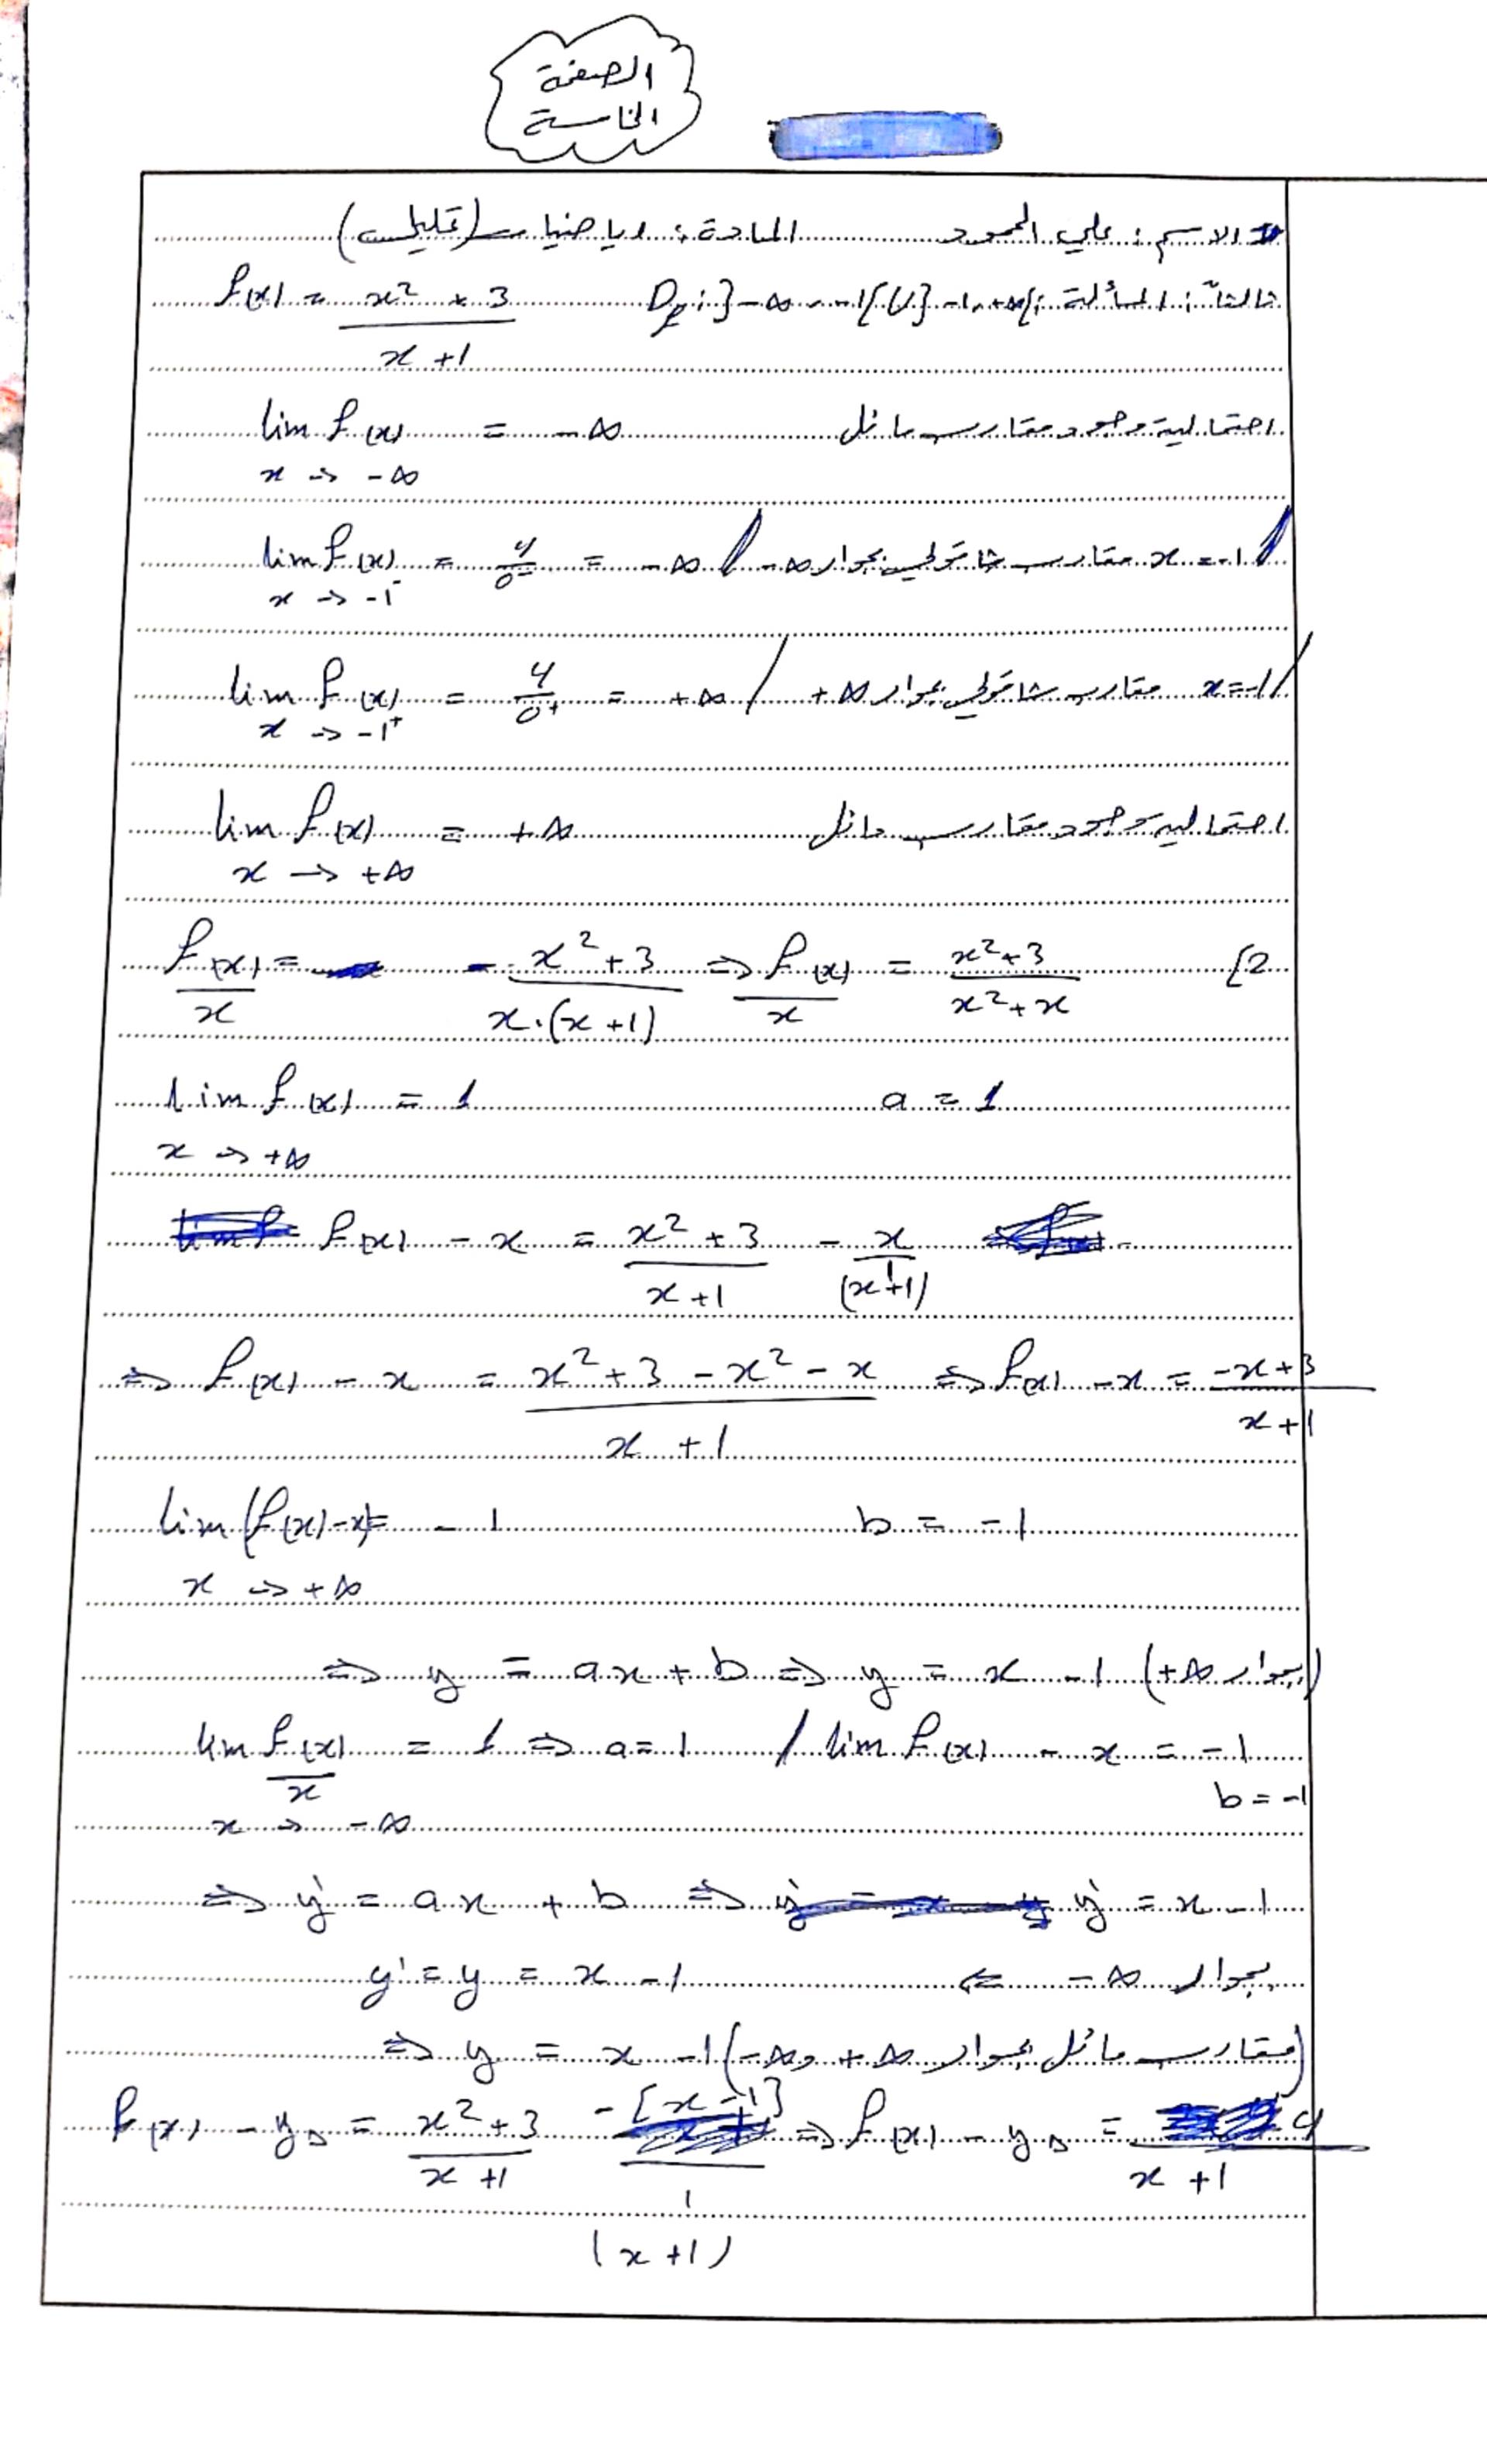 الصفحة
الخامسة
الاسم : علي الحمود المادة : رياضيات (تحليل)
ثالثاً : المسألة : D_f : ]-∞ , -1[ U ]-1 , +∞[ f(x) = (x² + 3)/(x + 1)
احتمالية وجود مقارب مائل lim f(x) = -∞
x → -∞
lim f(x) = 4/0⁻ = -∞ / x = -1 مقارب شاقولي بجوار -∞
x → -1⁻
lim f(x) = 4/0⁺ = +∞ / x = -1 مقارب شاقولي بجوار +∞
x → -1⁺
احتمالية وجود مقارب مائل lim f(x) = +∞
x → +∞
[2 f(x)/x = (x² + 3)/(x.(x + 1)) ⇒ f(x)/x = (x² + 3)/(x² + x)
lim f(x) = 1 a = 1
x → +∞
f(x) - x = (x² + 3)/(x + 1) - x/1 (x + 1)
⇒ f(x) - x = (x² + 3 - x² - x)/(x + 1) ⇒ f(x) - x = (-x + 3)/(x + 1)
lim (f(x) - x) = -1 b = -1
x → +∞
⇒ y = ax + b ⇒ y = x - 1 (بجوار +∞)
lim f(x)/x = 1 ⇒ a = 1 / lim f(x) - x = -1
x → -∞ b = -1
⇒ y' = ax + b ⇒ y' = x - 1
بجوار -∞ ⇐ y' = y = x - 1
⇒ y = x - 1 (مقارب مائل بجوار +∞ و -∞)
f(x) - y_Δ = (x² + 3)/(x + 1) - [x - 1]/1 (x + 1) ⇒ f(x) - y_Δ = 4/(x + 1)